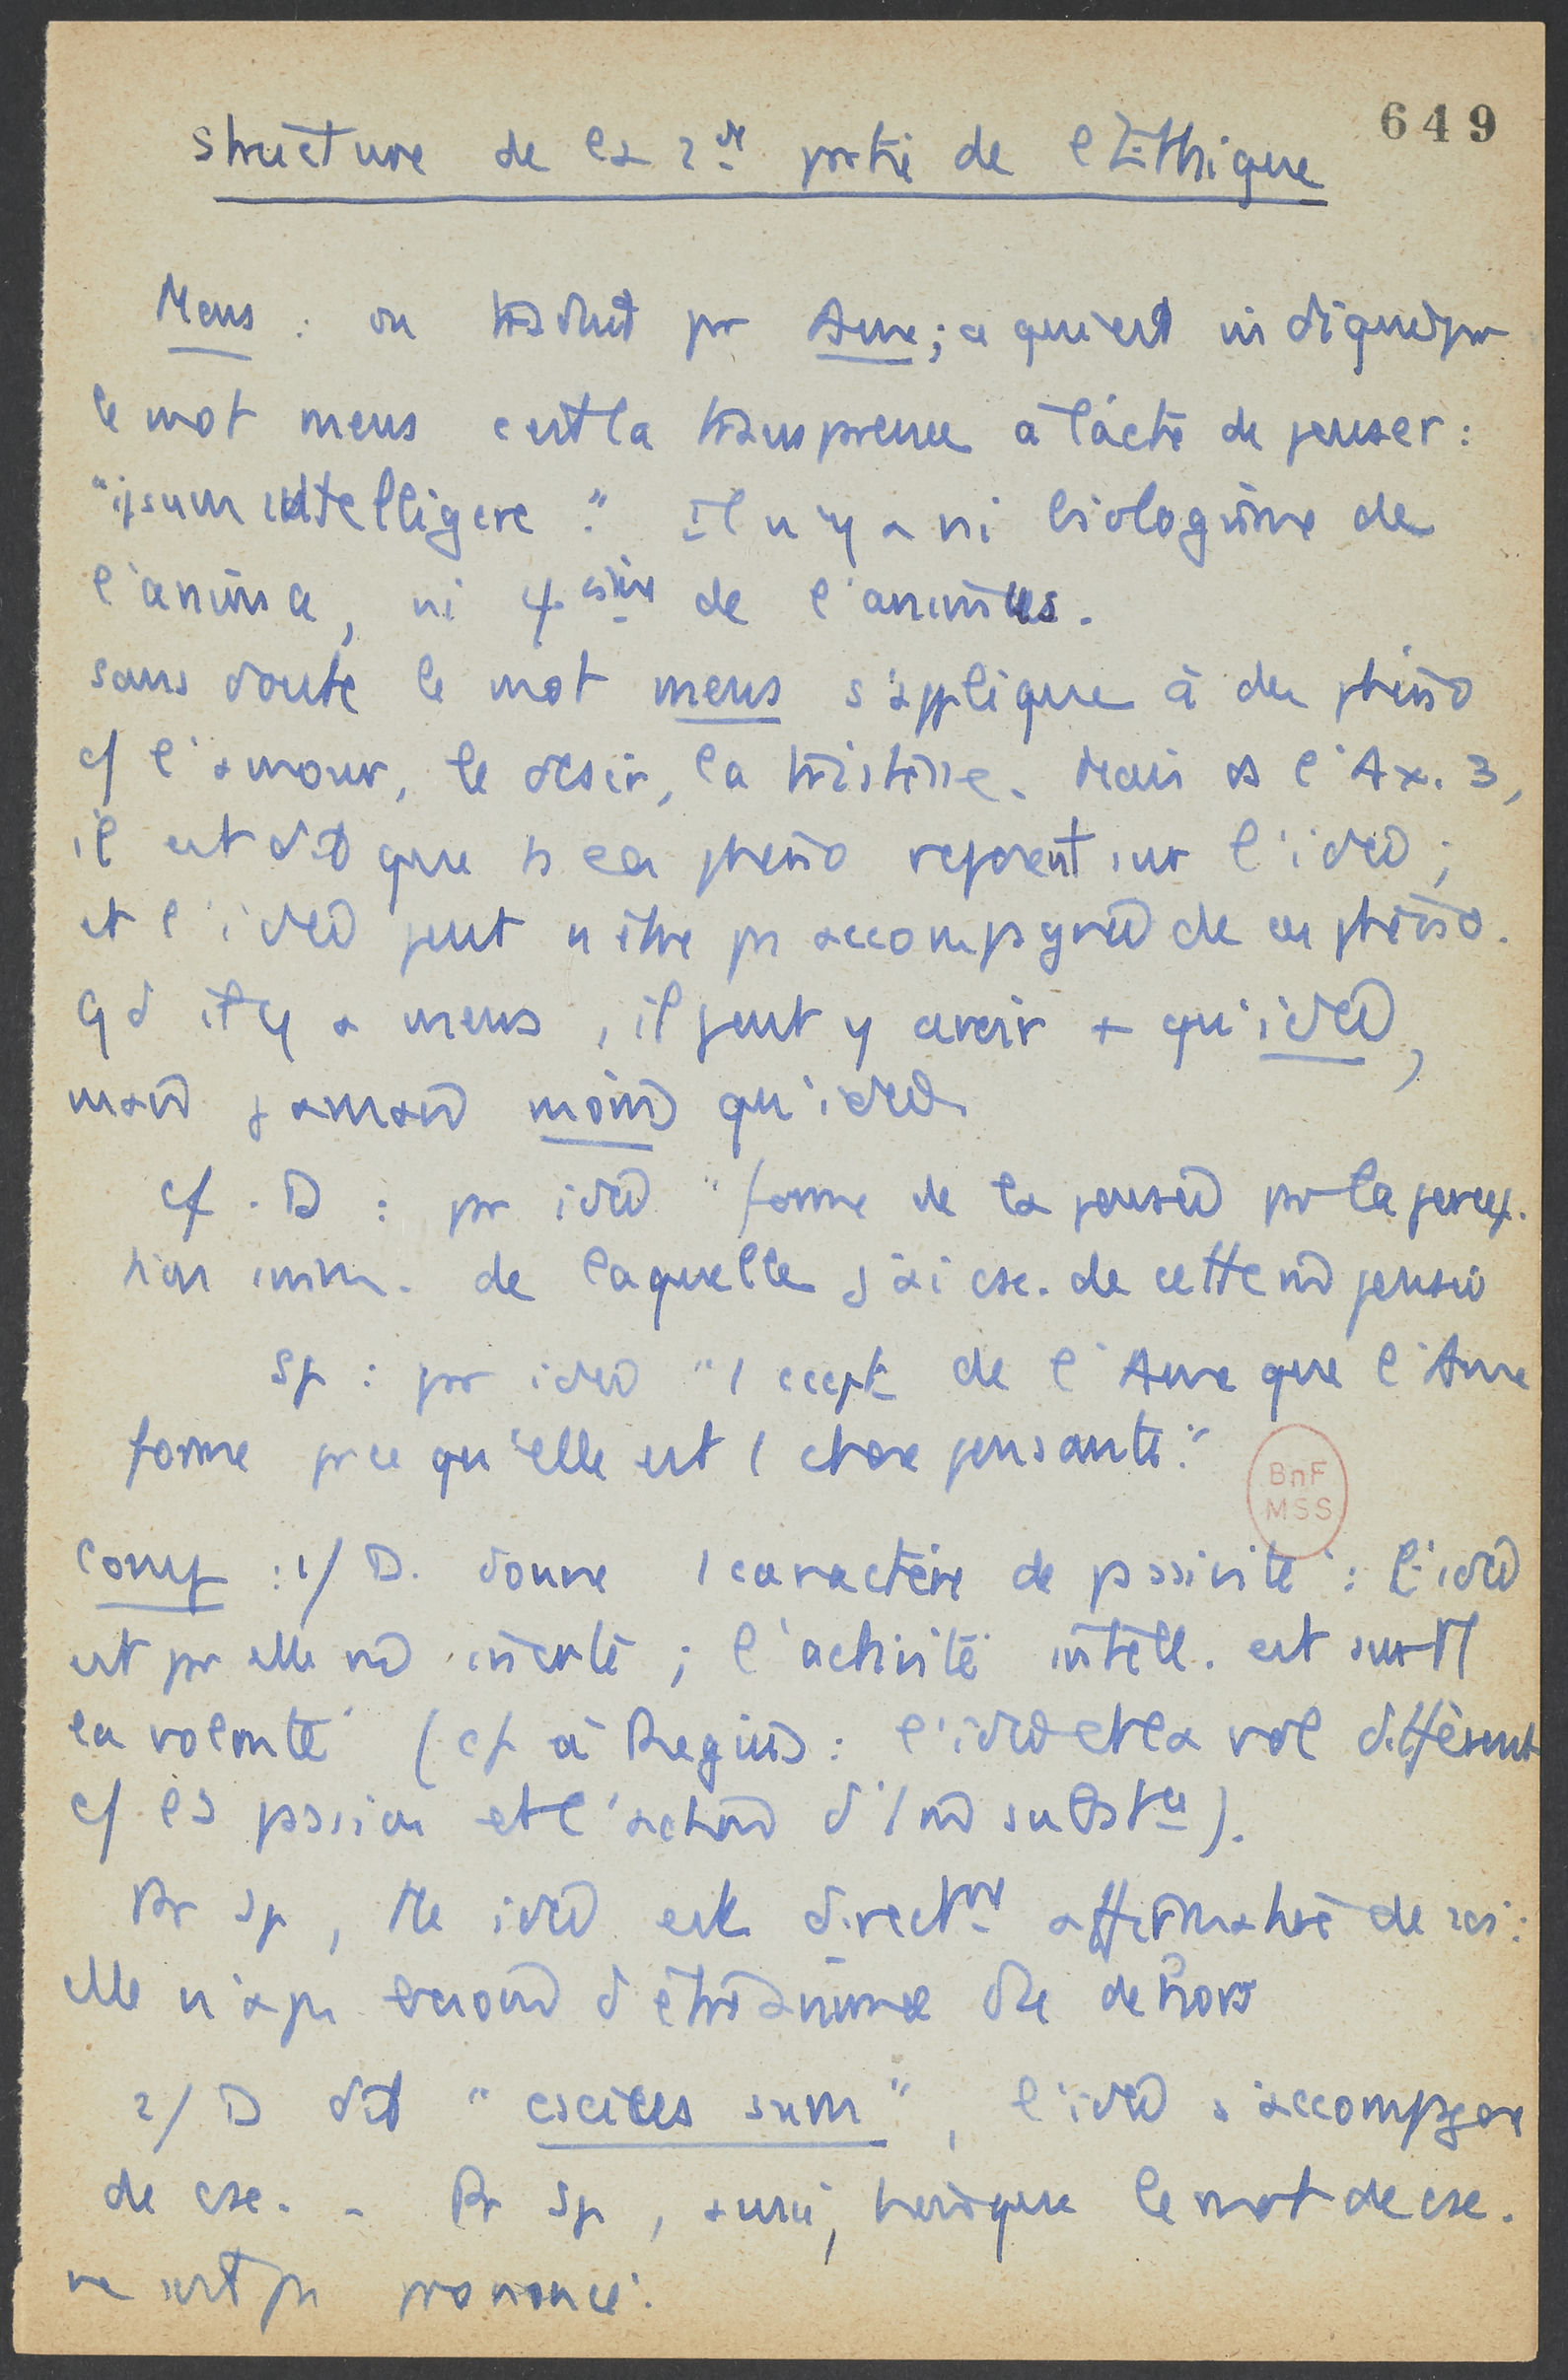 649
Structure de la 2de partie de l'Ethique
Mens : on traduit pr Ame ; ce qui est indiqué par
le mot mens c'est la transparence à l'acte de penser :
"ipsum intelligere". Il n'y a ni biologisme de
l'anima, ni de l'animus.
Sans doute le mot mens s'applique à des phéno
cf l'amour, le désir, la tristesse. Mais ds l'Ax. 3,
il est dit que ts ces phéno reposent sur l'idée ;
et l'idée peut n'être pas accompagnée de ces phéno.
Qd il y a mens, il peut y avoir + qu'idée,
mais jamais moins qu'idée
cf. D : pr idée "forme de la pensée pr la percep.
tion imm. de laquelle j'ai csc. de cette m̂ pensée
Sp : pr idée "1 ccept de l'Ame que l'Ame
forme pce qu'elle est 1 chose pensante."
BnF
MSS
Comp : 1/ D. donne 1 caractère de passivité : l'idée
est pr elle m̂ inerte ; l'activité intell. est surtt
la volonté (cf à Regius : l'idée et la vol diffèrent
cf la passion et l'action d'1 m̂ substce).
Pr Sp, tte idée est directmt affirmatrice de soi :
elle n'a pas besoin d'être animée du dehors
2/ D dit "conscius sum", l'idée s'accompagne
de csc. - Pr Sp, le mot de csc.
ne soit pas prononcé.